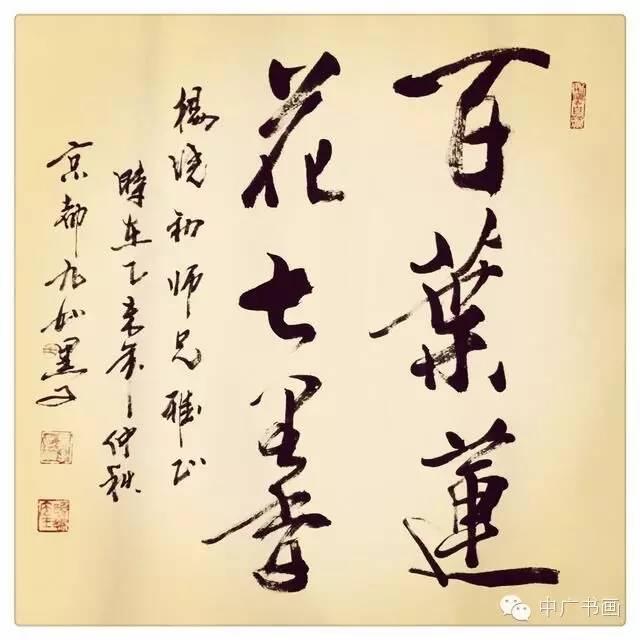 百葉蓮
花七里香
楊晓初师兄雅正
時在乙未年仲秋
京都九如墨子
中广书画